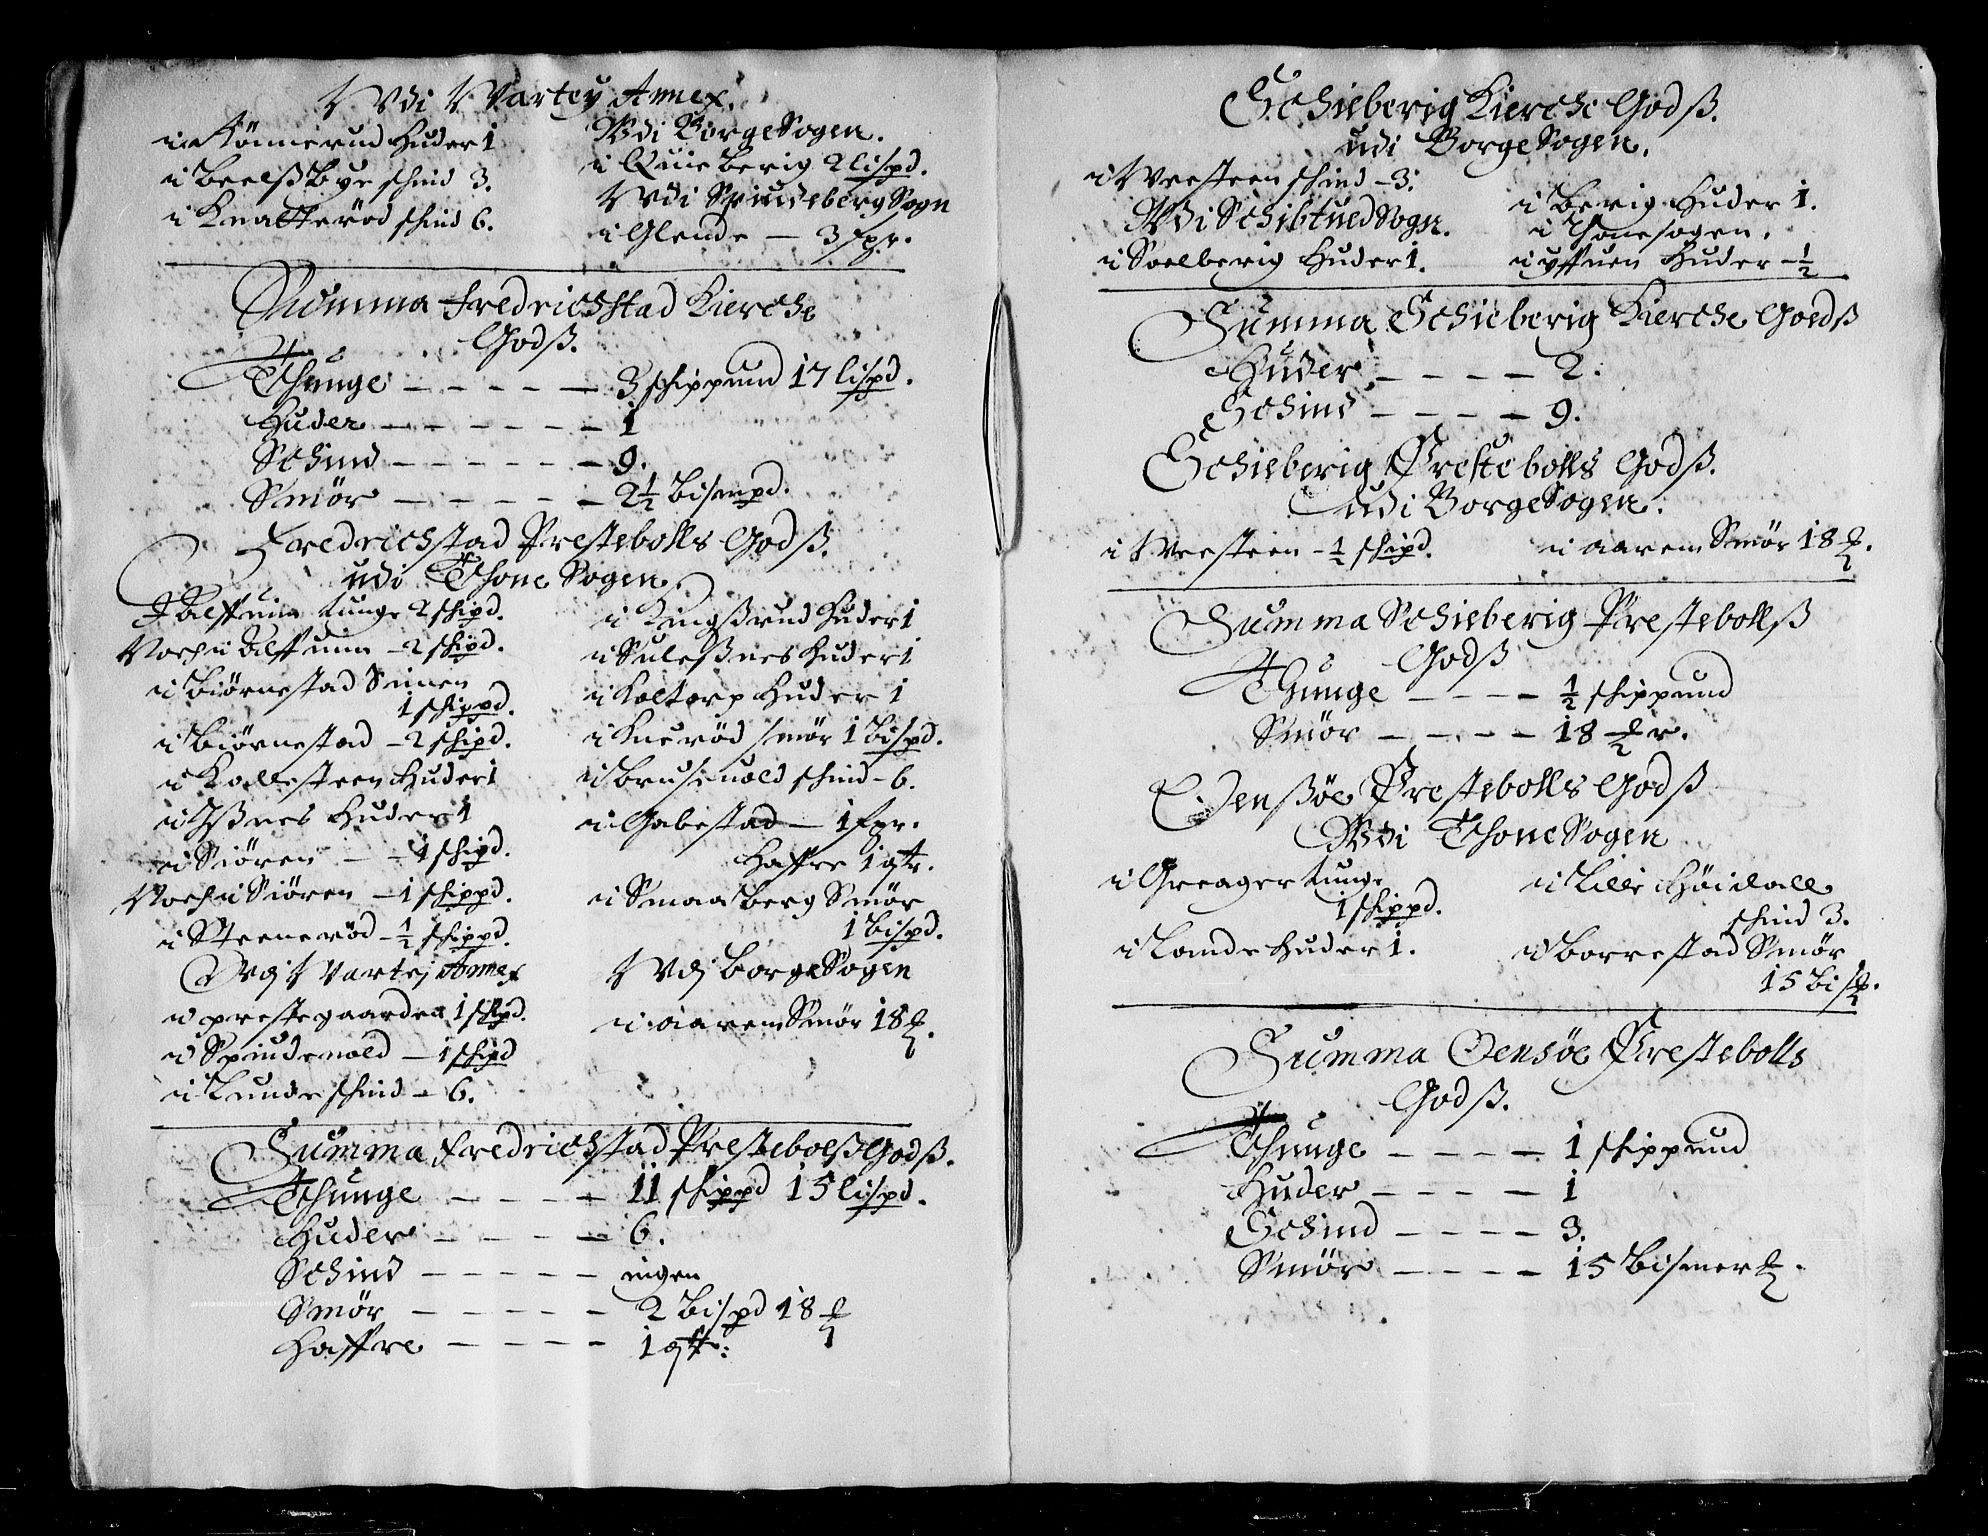 Vdi Vartey Annex.
i Rönnerud Huder 1
i Beelsß Bye schind 3.
i Knatteröd schind 6.
Vdi Borge Sogen.
i Quie berig 2 lispd.
Vdi Spiudeberg Sogn
i Glende — 3 spr.
Summa Fredrichstad Kierche
Godß.
Thunge — — — — — 3 schippund 17 lispd.
Huder — — — — — — 1
Schind — — — — — — 9.
Smör — — — — — 2½ bismpd.
Fredrichstad Prestebolls Godß.
udi Thone Sogen
tunge 2 schipd.
Noch i — 2 schipd.
i Biörnestad
1 schippd.
i Biörnestad — 2 schipd.
i Kallesteen Huder 1
i Ißnes Huder 1
i Siören — — 1 schipd.
Noch i Siören — 1 schippd.
i Steeneröd — ½ schippd.
Vdj Vartej Annex
i prestegaarden 1 schipd.
i Spiudeuold — 1 schipd
i Lunde schind — 6.
i Kingßrud Huder 1
i Suleßnes Huder 1
i Koltorp Huder 1
i Kneröd smör 1 bispd.
i Bruseuold schind — 6.
i Gabestad — 1 spr.
Haffre 1 qtr.
i Smaa berg Smör
1 bispd.
Vdj Borge Sogen
i aarem Smör 18 ℔.
Summa Fredrichstad Prestebolß Godß.
Thunge — — — — 11 schippd 15 lispd.
Huder — — — — — 6.
Schind — — — — — ingen
Smör — — — — — 2 bispd 18 ℔
Haffre — — — — — 1 qtr:
Schieberig Kierche Godß.
udi Borge Sogen.
i Vresteen schind — 3.
Vdi Schibtued Sogn.
i Soelberig Huder 1.
i Berig Huder 1.
i Thone sogen.
i yffuen Huder — ½
Summa Schieberig Kierche Goedß
Huder — — — — 2.
Schind — — — — 9.
Schieberig Prestebolls Godß.
udi Borge Sogen.
i Vresteen — ½ schipd.
i aarem Smör 18 ℔.
Summa Schieberig Prestebollß
Godß
Thunge — — — — ½ schippund
Smör — — — — 18 ℔r.
Oensßöe Prestebolls Godß
Vdi Thone Sogen
i Greager tunge
1 schippd.
i Lande Huder 1.
i Lille Höidall
schind 3.
i Borrestad Smör
15 bis℔.
Summa Oensöe Prestebolls
Godß.
Thunge — — — — 1 schippund
Huder — — — — 1
Schind — — — — 3.
Smör — — — — 15 bismer ℔.